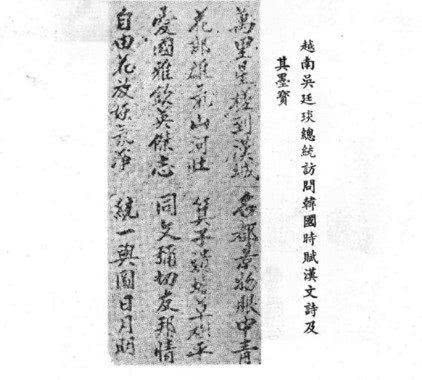 越南吳廷琰總統訪問韓國時賦漢文詩及
其墨寶
萬里星槎到漢城 名都景物眼中青
花郎雄氣山河壯 箕子遺墟草樹平
愛國雅欽英傑志 同文彌切友邦情
自由花放妖氛淨 統一輿圖日月明